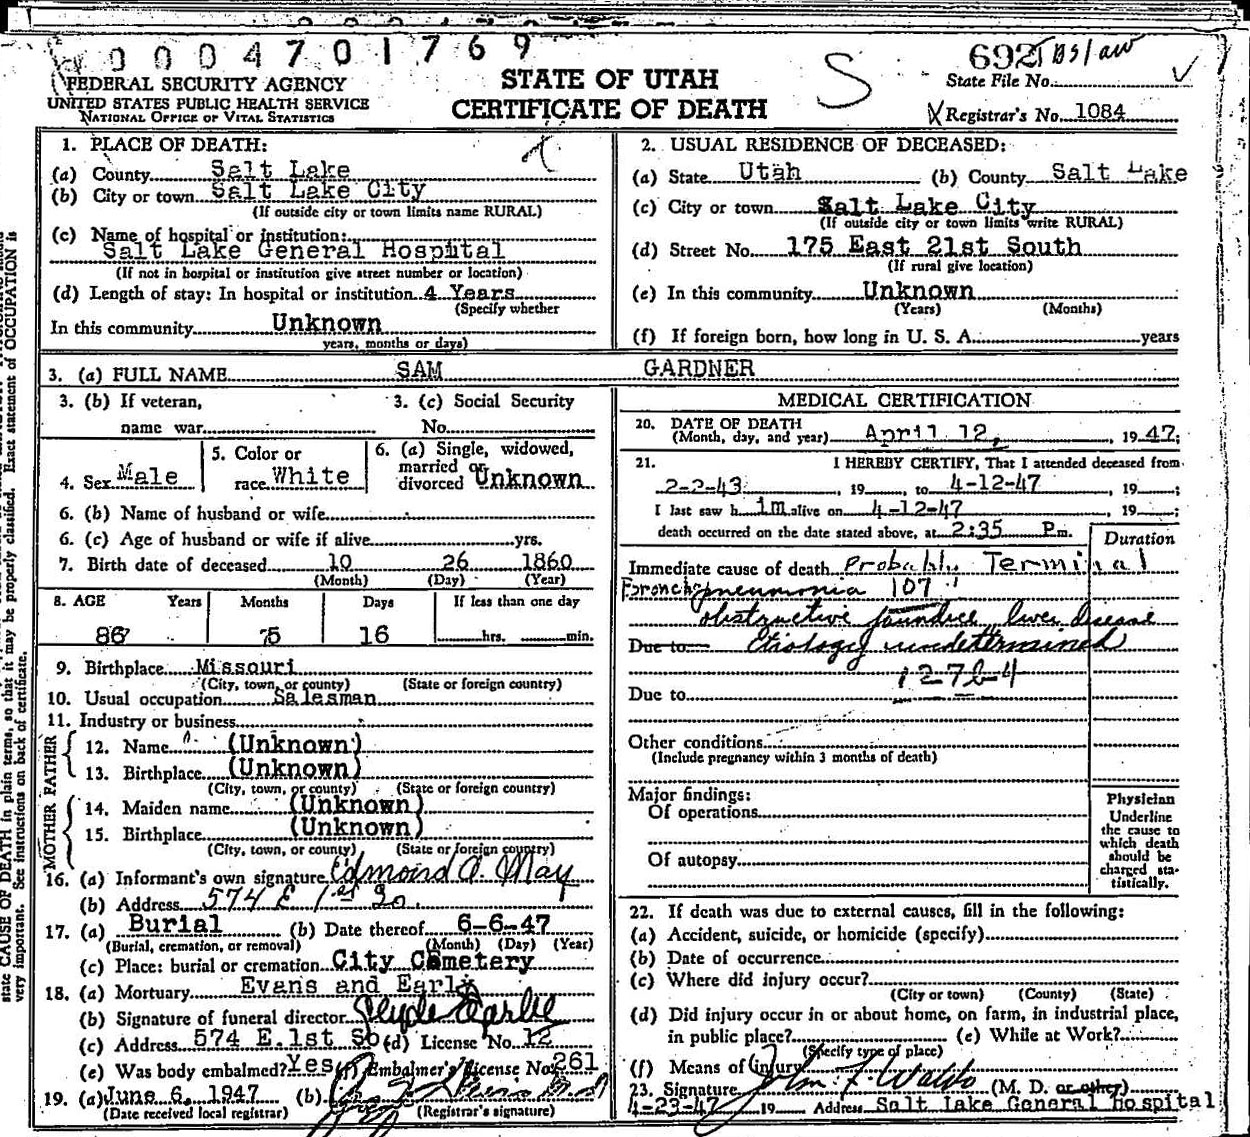 0004701769
692
FEDERAL SECURITY AGENCY
UNITED STATES PUBLIC HEALTH SERVICE
NATIONAL OFFICE OF VITAL STATISTICS
STATE OF UTAH
CERTIFICATE OF DEATH
S
State File No.
Registrar's No. 1084
1. PLACE OF DEATH:
(a) County Salt Lake
(b) City or town Salt Lake City
(If outside city or town limits name RURAL)
(c) Name of hospital or institution:
Salt Lake General Hospital
(If not in hospital or institution give street number or location)
(d) Length of stay: In hospital or institution 4 Years
(Specify whether
In this community Unknown
years, months or days)
2. USUAL RESIDENCE OF DECEASED:
(a) State Utah (b) County Salt Lake
(c) City or town Salt Lake City
(If outside city or town limits write RURAL)
(d) Street No. 175 East 21st South
(If rural give location)
(e) In this community Unknown
(Years) (Months)
(f) If foreign born, how long in U. S. A. years
3. (a) FULL NAME SAM GARDNER
3. (b) If veteran,
name war
3. (c) Social Security
No.
4. Sex Male
5. Color or
race White
6. (a) Single, widowed,
married or
divorced Unknown
6. (b) Name of husband or wife
6. (c) Age of husband or wife if alive yrs.
7. Birth date of deceased 10 26 1860
(Month) (Day) (Year)
8. AGE Years Months Days If less than one day
86 5 16 hrs. min.
9. Birthplace Missouri
(City, town, or county) (State or foreign country)
10. Usual occupation Salesman
11. Industry or business
FATHER
12. Name (Unknown)
13. Birthplace (Unknown)
(City, town, or county) (State or foreign country)
MOTHER
14. Maiden name (Unknown)
15. Birthplace (Unknown)
(City, town, or county) (State or foreign country)
16. (a) Informant's own signature Edmond A. May
(b) Address 574 E 1st So.
17. (a) Burial (b) Date thereof 6-6-47
(Burial, cremation, or removal) (Month) (Day) (Year)
(c) Place: burial or cremation City Cemetery
18. (a) Mortuary Evans and Early
(b) Signature of funeral director Clyde Earlie
(c) Address 574 E.1st So (d) License No. 12
(e) Was body embalmed? Yes (f) Embalmer's License No. 261
19. (a) June 6, 1947 (b)
(Date received local registrar) (Registrar's signature)
MEDICAL CERTIFICATION
20. DATE OF DEATH
(Month, day, and year) April 12, , 1947;
21. I HEREBY CERTIFY, That I attended deceased from
2-2-43, 19, to 4-12-47, 19;
I last saw him alive on 4-12-47, 19;
death occurred on the date stated above, at 2:35 P m.
Duration
Immediate cause of death Probably Terminal
Bronchopneumonia 107
obstructive jaundice liver disease
Due to Etiology undetermined
127b-4
Due to
Other conditions
(Include pregnancy within 3 months of death)
Major findings:
Of operations
Of autopsy
Physician
Underline
the cause to
which death
should be
charged sta-
tistically.
22. If death was due to external causes, fill in the following:
(a) Accident, suicide, or homicide (specify)
(b) Date of occurrence
(c) Where did injury occur?
(City or town) (County) (State)
(d) Did injury occur in or about home, on farm, in industrial place,
in public place? (e) While at Work?
(Specify type of place)
(f) Means of Injury
23. Signature John F. Waldo (M. D. or other)
4-23-47 19 Address Salt Lake General Hospital
state CAUSE OF DEATH in plain terms, so that it may be properly classified. Exact statement of OCCUPATION is
very important. See instructions on back of certificate.